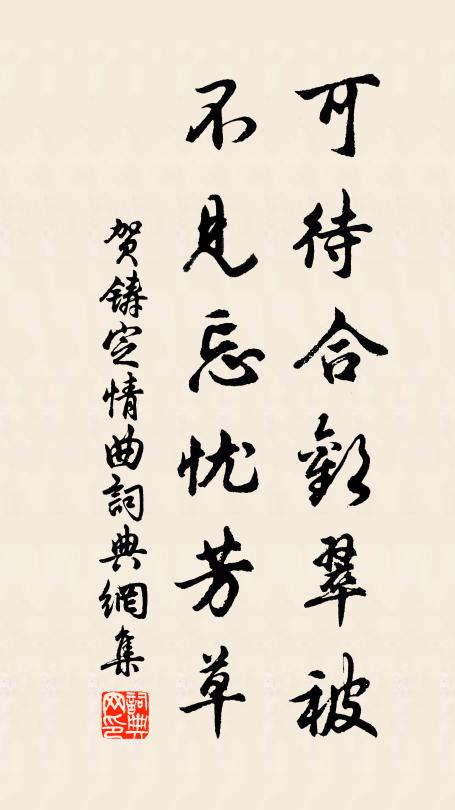 可待合歡翠被
不見忘忧芳草
贺鑄定情曲詞典網集
詞典网印